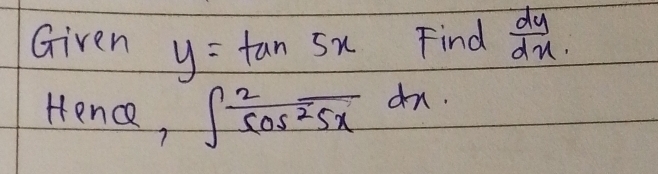 Given y = tan 5x Find dy/dx.
Hence, ∫ 2/cos²5x dx.